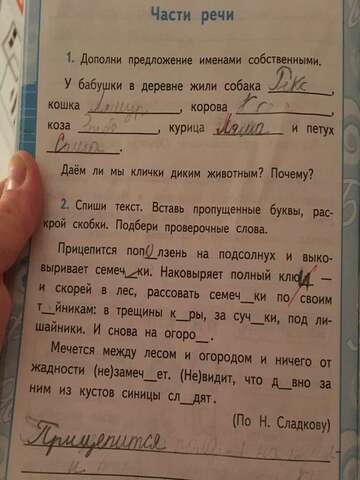 Части речи
1. Дополни предложение именами собственными.
У бабушки в деревне жили собака Рекс,
кошка, корова,
коза, курица и петух
Даём ли мы клички диким животным? Почему?
2. Спиши текст. Вставь пропущенные буквы, рас-
крой скобки. Подбери проверочные слова.
Прицепится поползень на подсолнух и выко-
выривает семеч_ки. Наковыряет полный клюв —
и скорей в лес, рассовать семеч_ки по своим
т_йникам: в трещины к_ры, за суч_ки, под ли-
шайники. И снова на огоро_.
Мечется между лесом и огородом и ничего от
жадности (не)замеч_ет. (Не)видит, что д_вно за
ним из кустов синицы сл_дят.
(По Н. Сладкову)
Прицепится